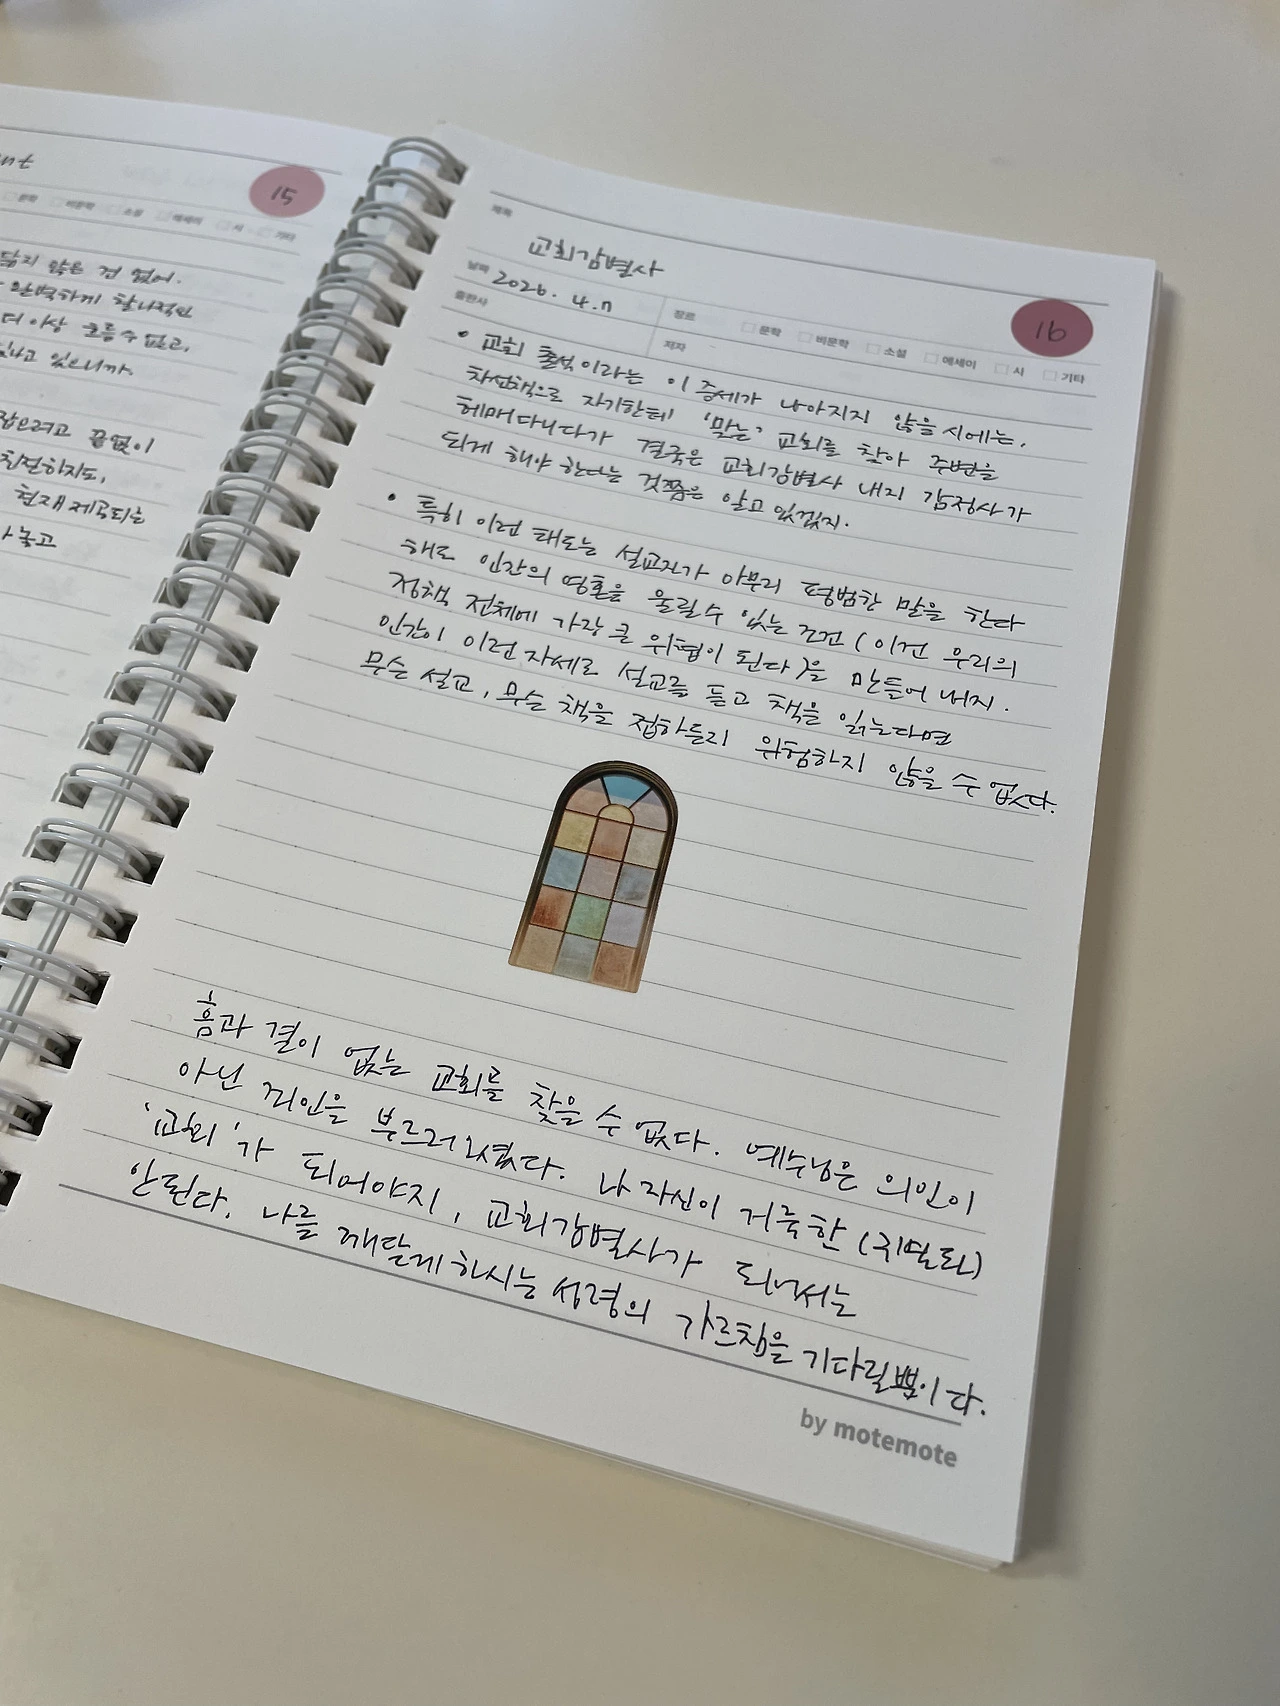 15
문학 비문학 소설 에세이 시 기타
않은 건 없어.
완벽하게 찰나적인
더 이상 흐를 수 없고,
있으니까.
잡으려고 끝없이
친절하지도,
현재 제공되는
놓고
제목
교회감별사
16
날짜 2026. 4. 7
장르 문학 비문학 소설 에세이 시 기타
출판사
저자
• 교회 출석이라는 이 증세가 나아지지 않을 시에는,
차선책으로 자기한테 '맞는' 교회를 찾아 주변을
헤매다니다가 결국은 교회감별사 내지 감정사가
되게 해야 한다는 것쯤은 알고 있겠지.
• 특히 이런 태도는 설교자가 아무리 평범한 말을 한다
해도 인간의 영혼을 울릴 수 있는 조건 (이건 우리의
정책 전체에 가장 큰 위협이 된다)을 만들어 내지.
인간이 이런 자세로 설교를 듣고 책을 읽는다면
무슨 설교, 무슨 책을 접하든지 위험하지 않을 수 없다.
흠과 결이 없는 교회를 찾을 수 없다. 예수님은 의인이
아닌 죄인을 부르러 오셨다. 나 자신이 거룩한 (구별된)
'교회'가 되어야지, 교회감별사가 되어서는
안된다. 나를 깨닫게 하시는 성령의 가르침을 기다릴뿐이다.
by motemote